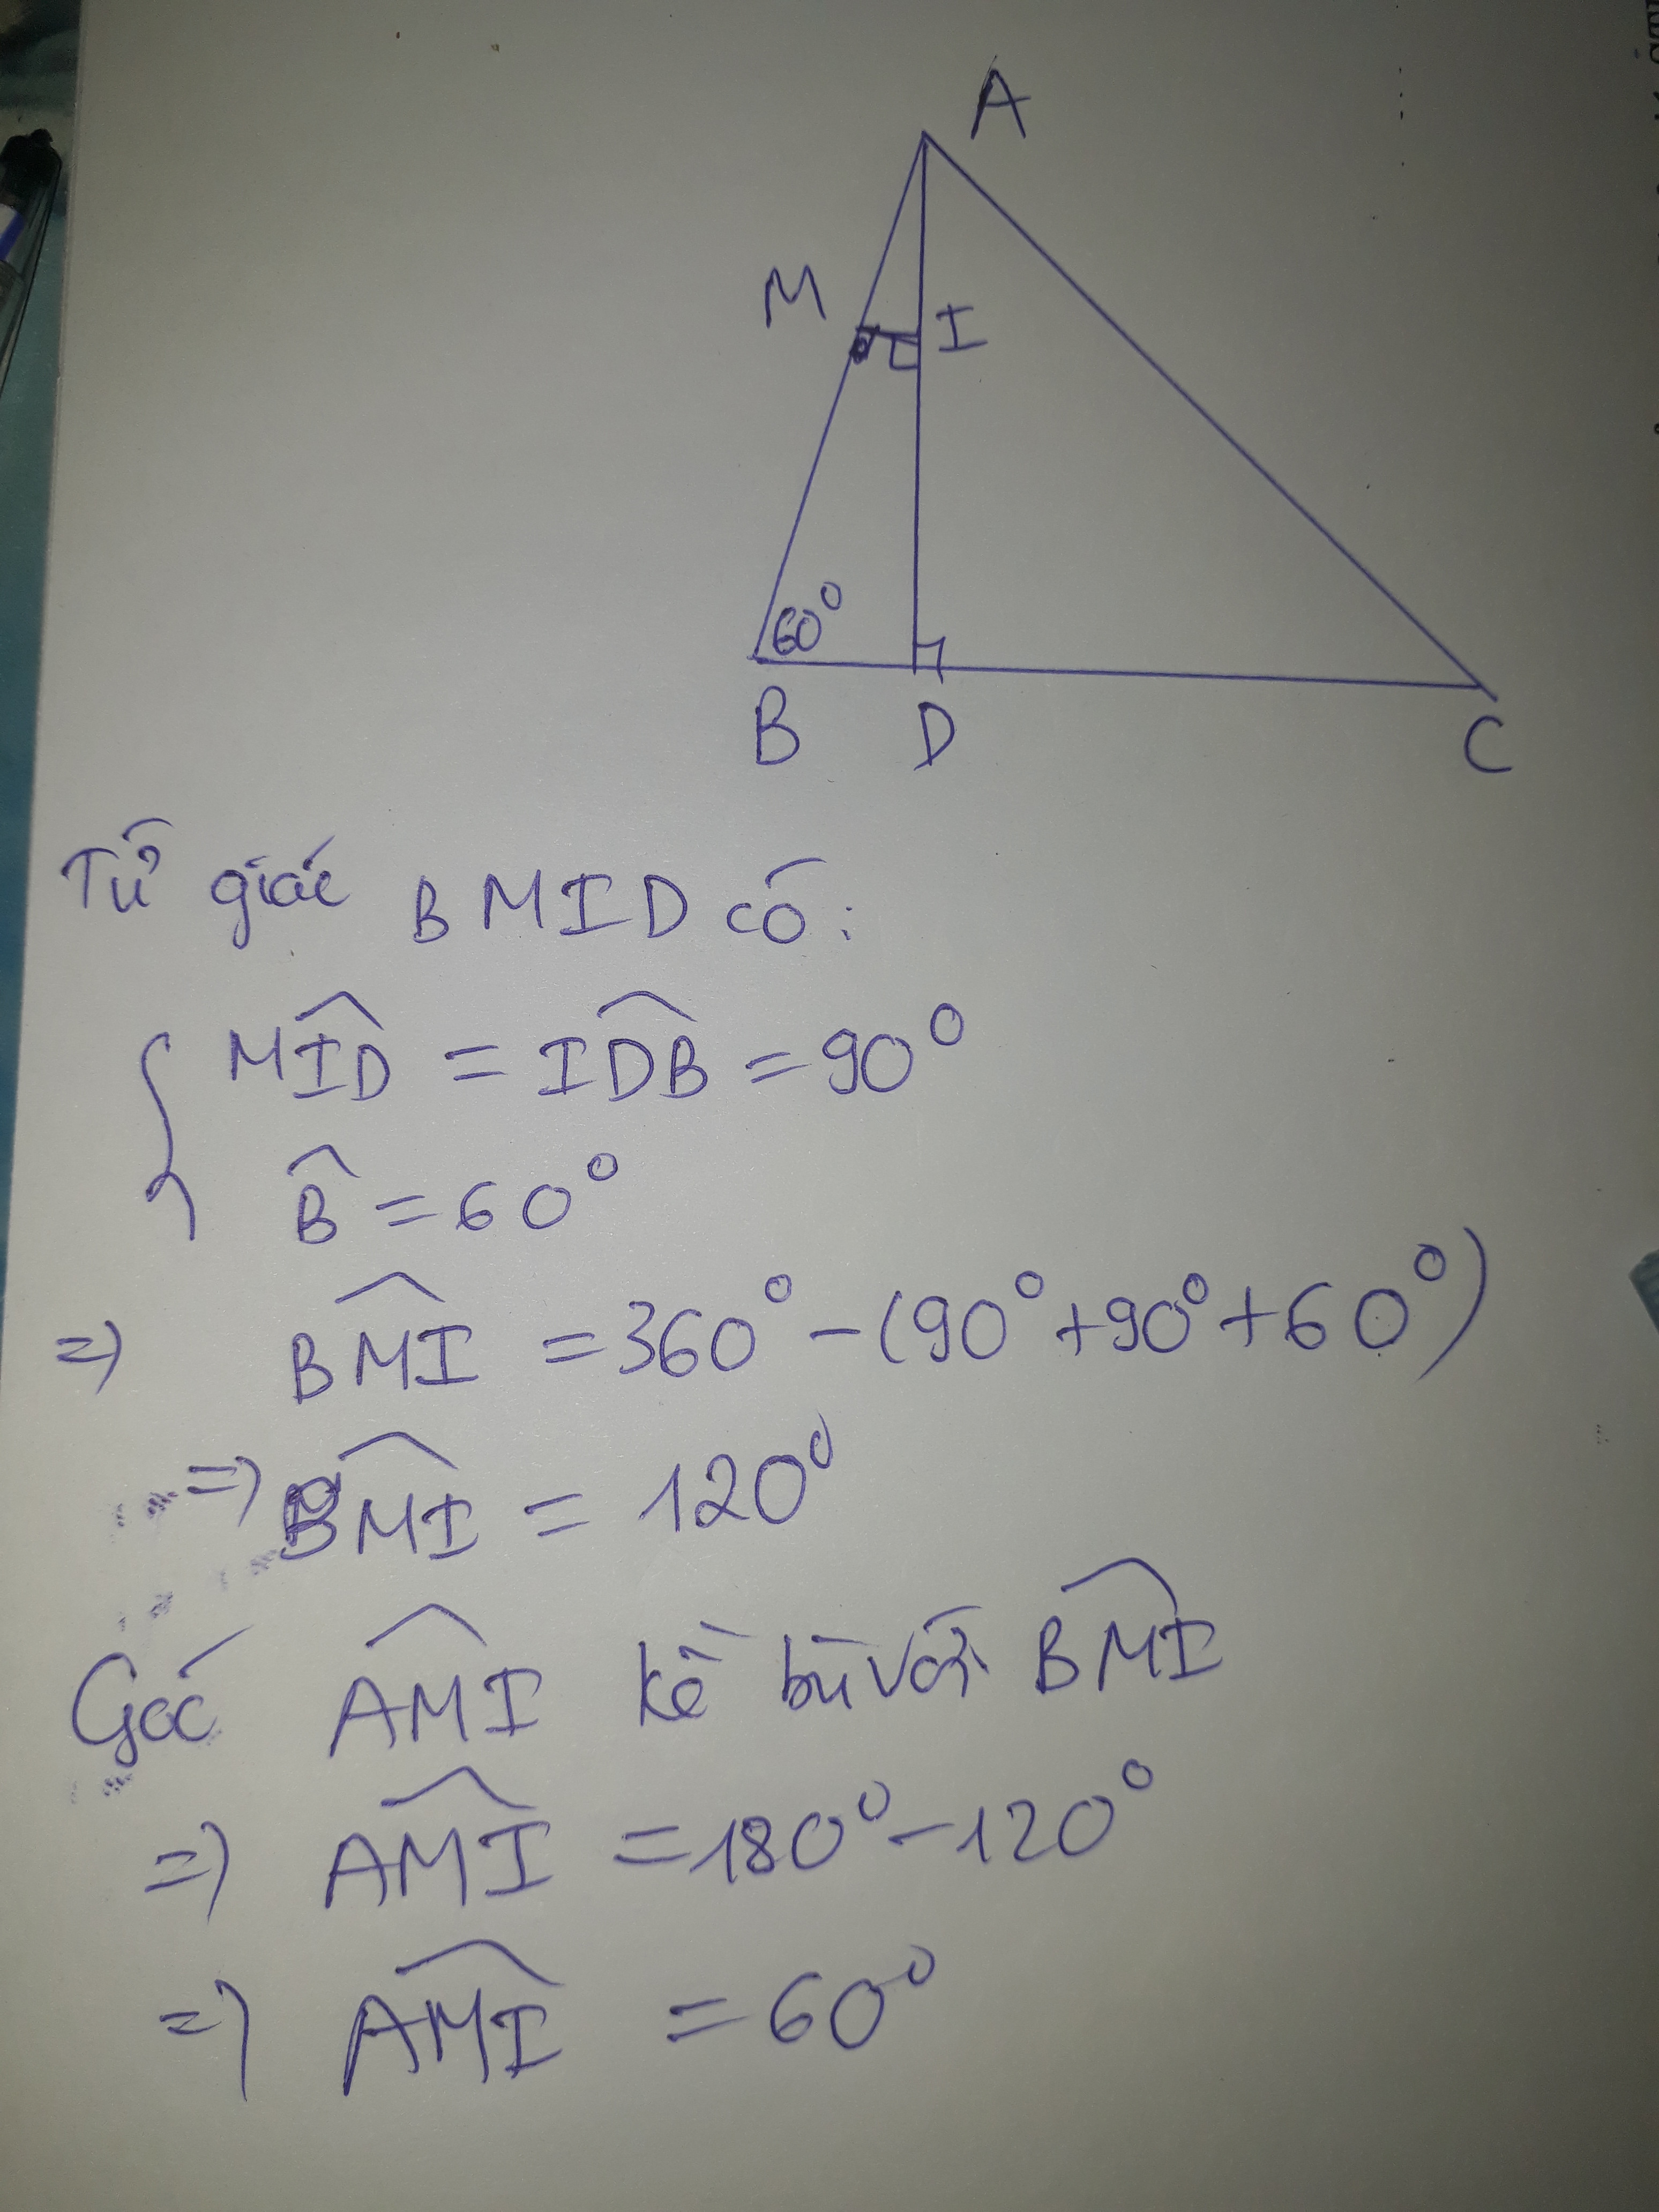 A
M
I
60°
B D C
Tứ giác BMID có:
MID = IDB = 90°
B = 60°
=> BMI = 360° - (90° + 90° + 60°)
=> BMI = 120°
Góc AMI kề bù với BMI
=> AMI = 180° - 120°
=> AMI = 60°